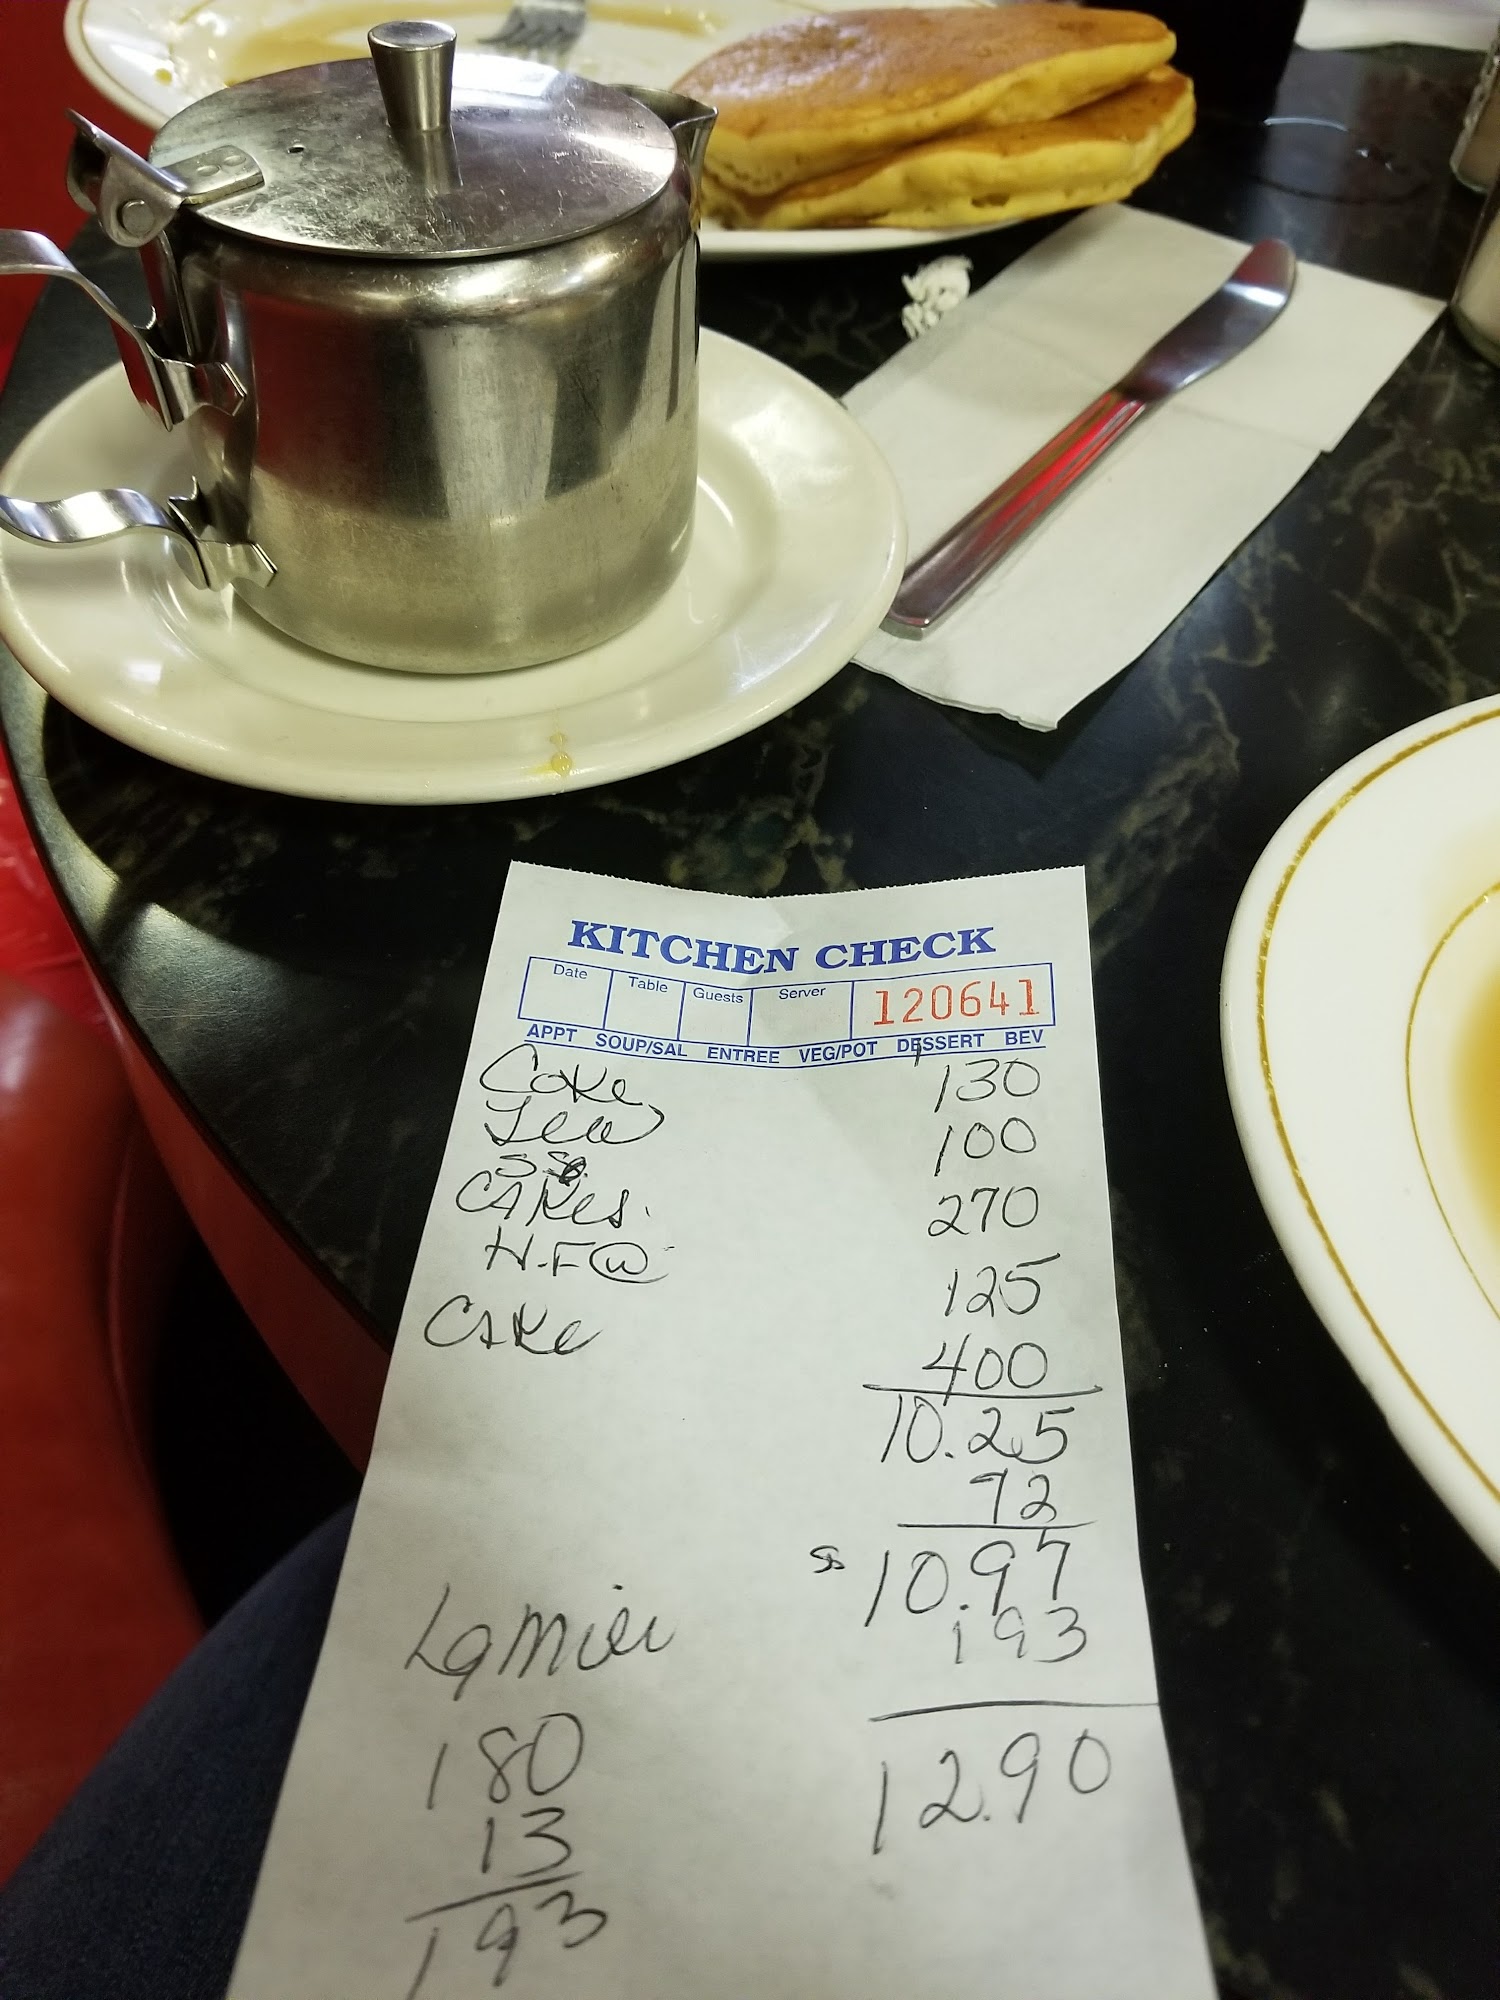 KITCHEN CHECK
Date Table Guests Server 120641
APPT SOUP/SAL ENTREE VEG/POT DESSERT BEV
Coke 130
Tea 100
SS
CAKES. 270
H.F@ 125
CAKe 400
10.25
72
10.97
193
12.90
180
13
193